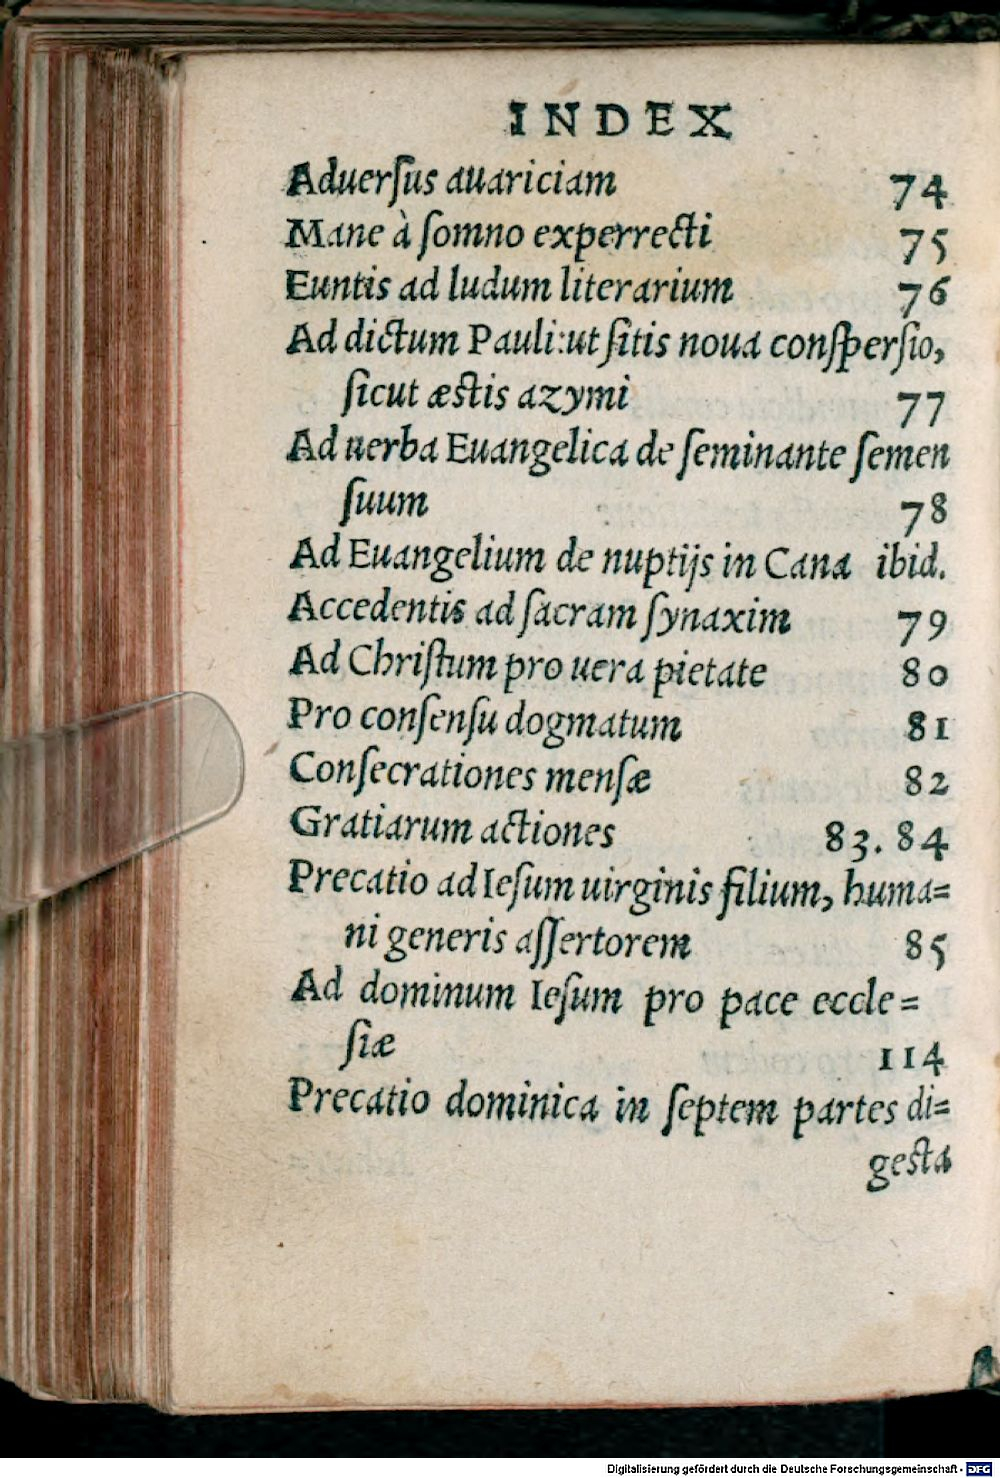 INDEX
Aduerſus auariciam 74
Mane à ſomno experrecti 75
Euntis ad ludum literarium 76
Ad dictum Pauli: ut ſitis noua conſperſio,
ſicut æſtis azymi 77
Ad uerba Euangelica de ſeminante ſemen
ſuum 78
Ad Euangelium de nuptijs in Cana ibid.
Accedentis ad ſacram ſynaxim 79
Ad Chriſtum pro uera pietate 80
Pro conſenſu dogmatum 81
Conſecrationes menſæ 82
Gratiarum actiones 83. 84
Precatio ad Ieſum uirginis filium, huma=
ni generis aſſertorem 85
Ad dominum Ieſum pro pace eccle=
ſiæ 114
Precatio dominica in ſeptem partes di=
geſta
Digitalisierung gefördert durch die Deutsche Forschungsgemeinschaft - DFG